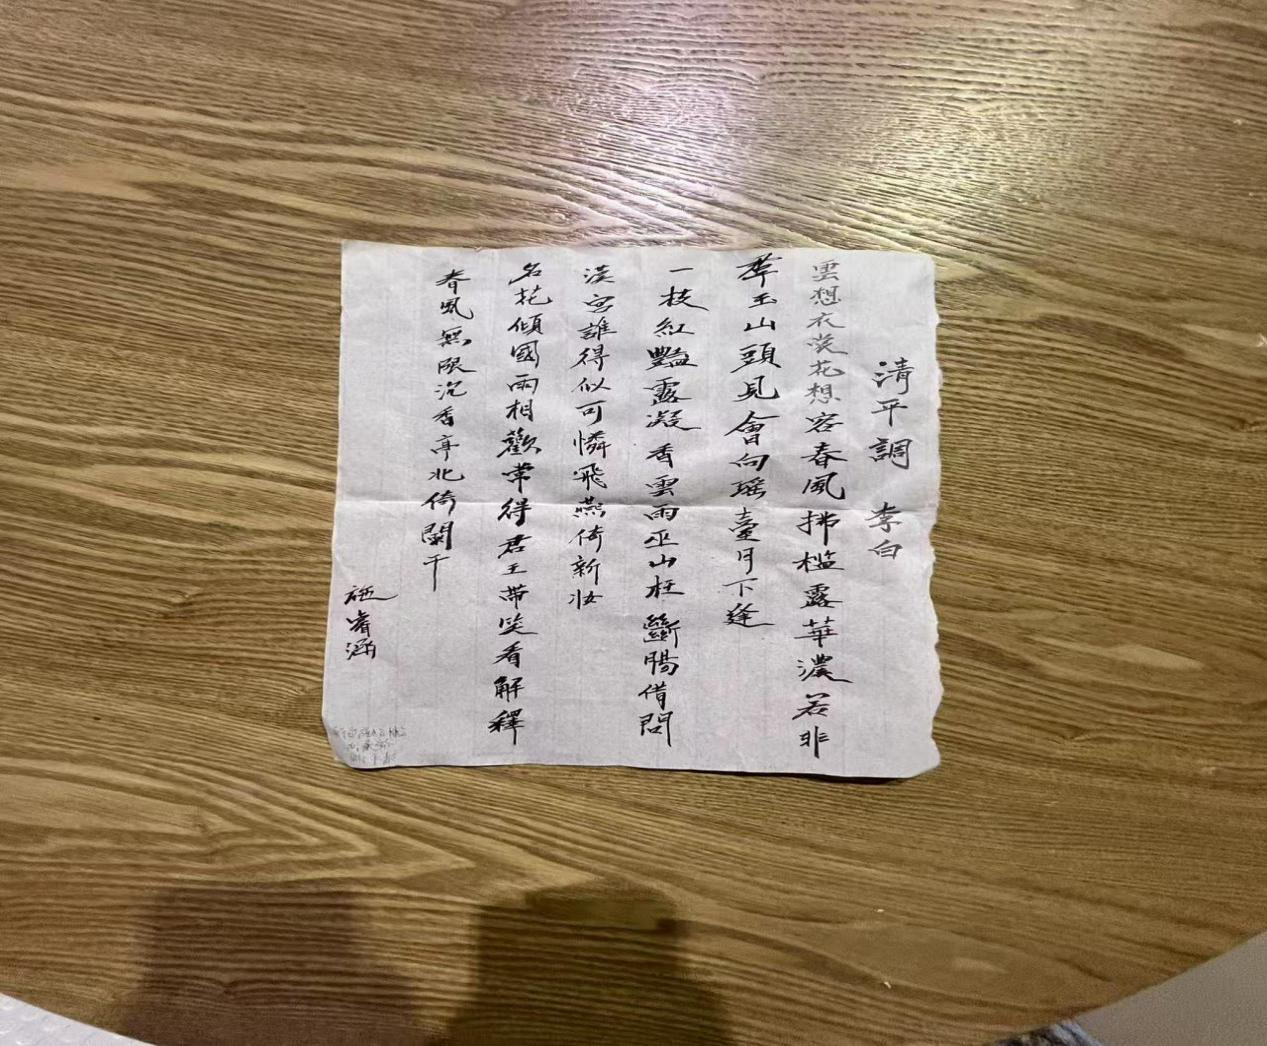 清平調 李白
雲想衣裳花想容春風拂檻露華濃若非
羣玉山頭見會向瑤臺月下逢
一枝紅豔露凝香雲雨巫山枉斷腸借問
漢宮誰得似可憐飛燕倚新妝
名花傾國兩相歡常得君王帶笑看解釋
春風無限沉香亭北倚闌干
施睿涵